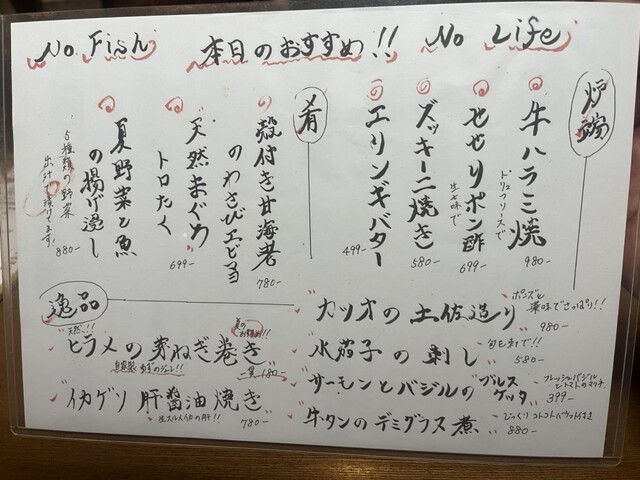 No Fish 本日のおすすめ!! No Life
炉端
牛ハラミ焼
980-
せせりポン酢
生七味で
699-
ズッキーニ焼き
580-
エリンギバター
499-
肴
殻付き甘海老
のわさびエビマヨ
780-
天然まぐろ
トロたく
699-
夏野菜と魚
の揚げ浸し
5種類の野菜
880-
逸品
天然!!
ヒラメの芽ねぎ巻き
一貫 180-
イカゲソ肝醤油焼き
生スルメイカの肝!!
780-
カツオの土佐造り
ポンズと
薬味でさっぱり!!
980-
水茄子の刺し
580-
サーモンとバジルのブルス
ケッタ
フレッシュバジル
とトマトのマリネ
399-
牛タンのデミグラス煮
880-